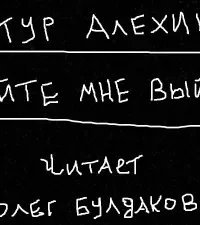 ТУР АЛЕХИН
ЙТЕ МНЕ ВЫЙ
ЧИТАЕТ
ОЛЕГ БУЛДАКОВ